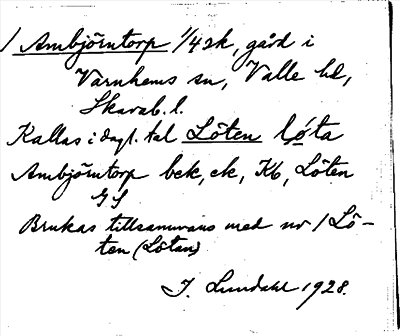 1 Ambjörntorp 1/4 sk, gård i
Varnhems sn, Valle hd,
Skarab. l.
Kallas i dagl. tal Löten lo̱ta
Ambjörntorp bek, ek, Kb, Löten
GS
Brukas tillsammans med nr 1 Lö-
ten (Lötan)
I. Lundahl 1928.